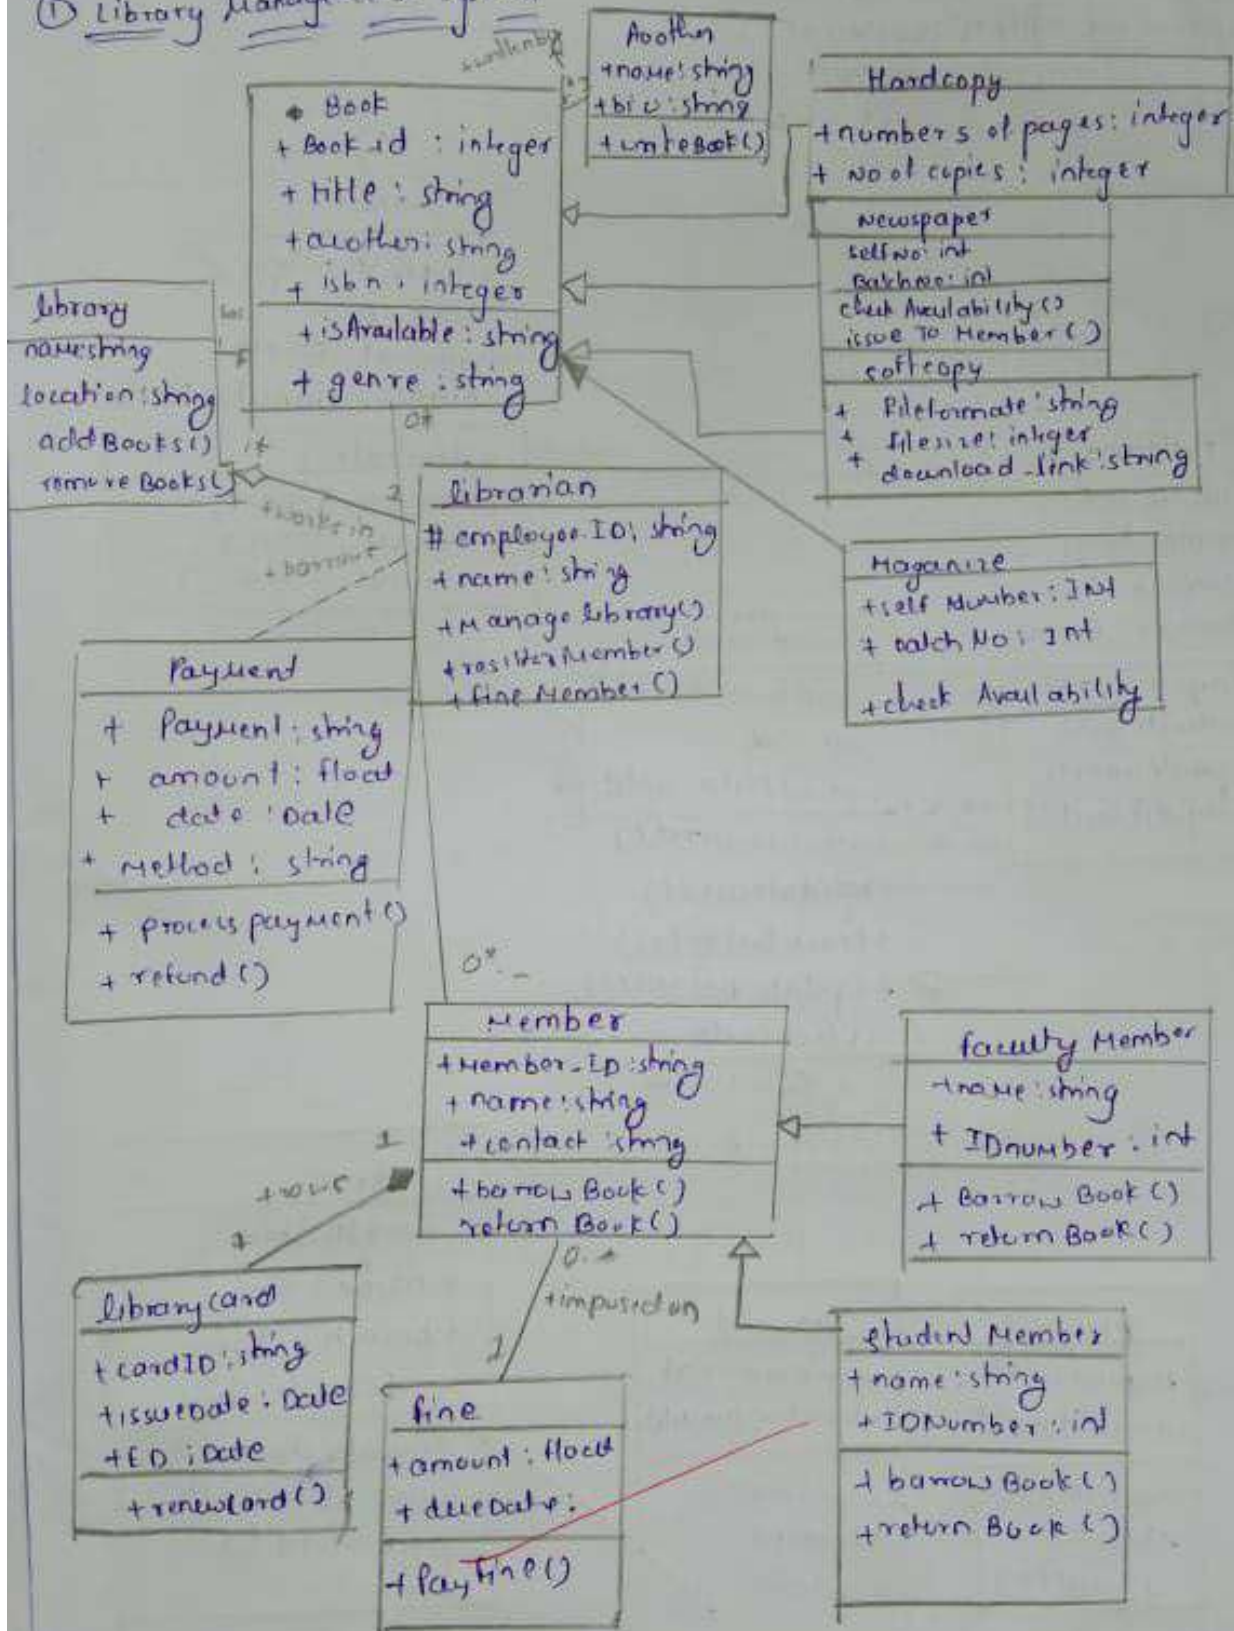 ① Library
+writtenby
Aoother
+name: string
+bio: string
+writeBook()
Hardcopy
+numbers of pages: integer
+ No of copies: integer
Book
+ Book id : integer
+ title : string
+aother: string
+ isbn : integer
+ isAvailable : string
+ genre : string
Newspaper
selfNo: int
BatchNo: int
check Availability()
issue To Member()
softcopy
+ Fileformate: string
+ filesize: integer
+ download_link: string
library
name:string
location:string
addBooks()
remove Books()
has
1*
0*
librarian
# employee ID: string
+ name: string
+Manage library()
+ fine Member()
Maganize
+self Number: INt
+ batch No: Int
+check Availability
Payment
+ Payment: string
+ amount: float
+ date : Date
+ Method: string
+ process payment()
+ refund()
0*..
Member
+Member_ID:string
+ name:string
+contact :string
+barrow Book()
return Book()
faculty Member
+name: string
+ IDnumber: int
+ Barrow Book()
+ return Book()
1
1
0..*
1
library card
+cardID: string
+issueDate: Date
+ED : Date
+renewCard()
fine
+amount: float
+ dueDate:
+ Pay Fine()
student Member
+name: string
+IDNumber: int
+ barrow Book()
+return Book()